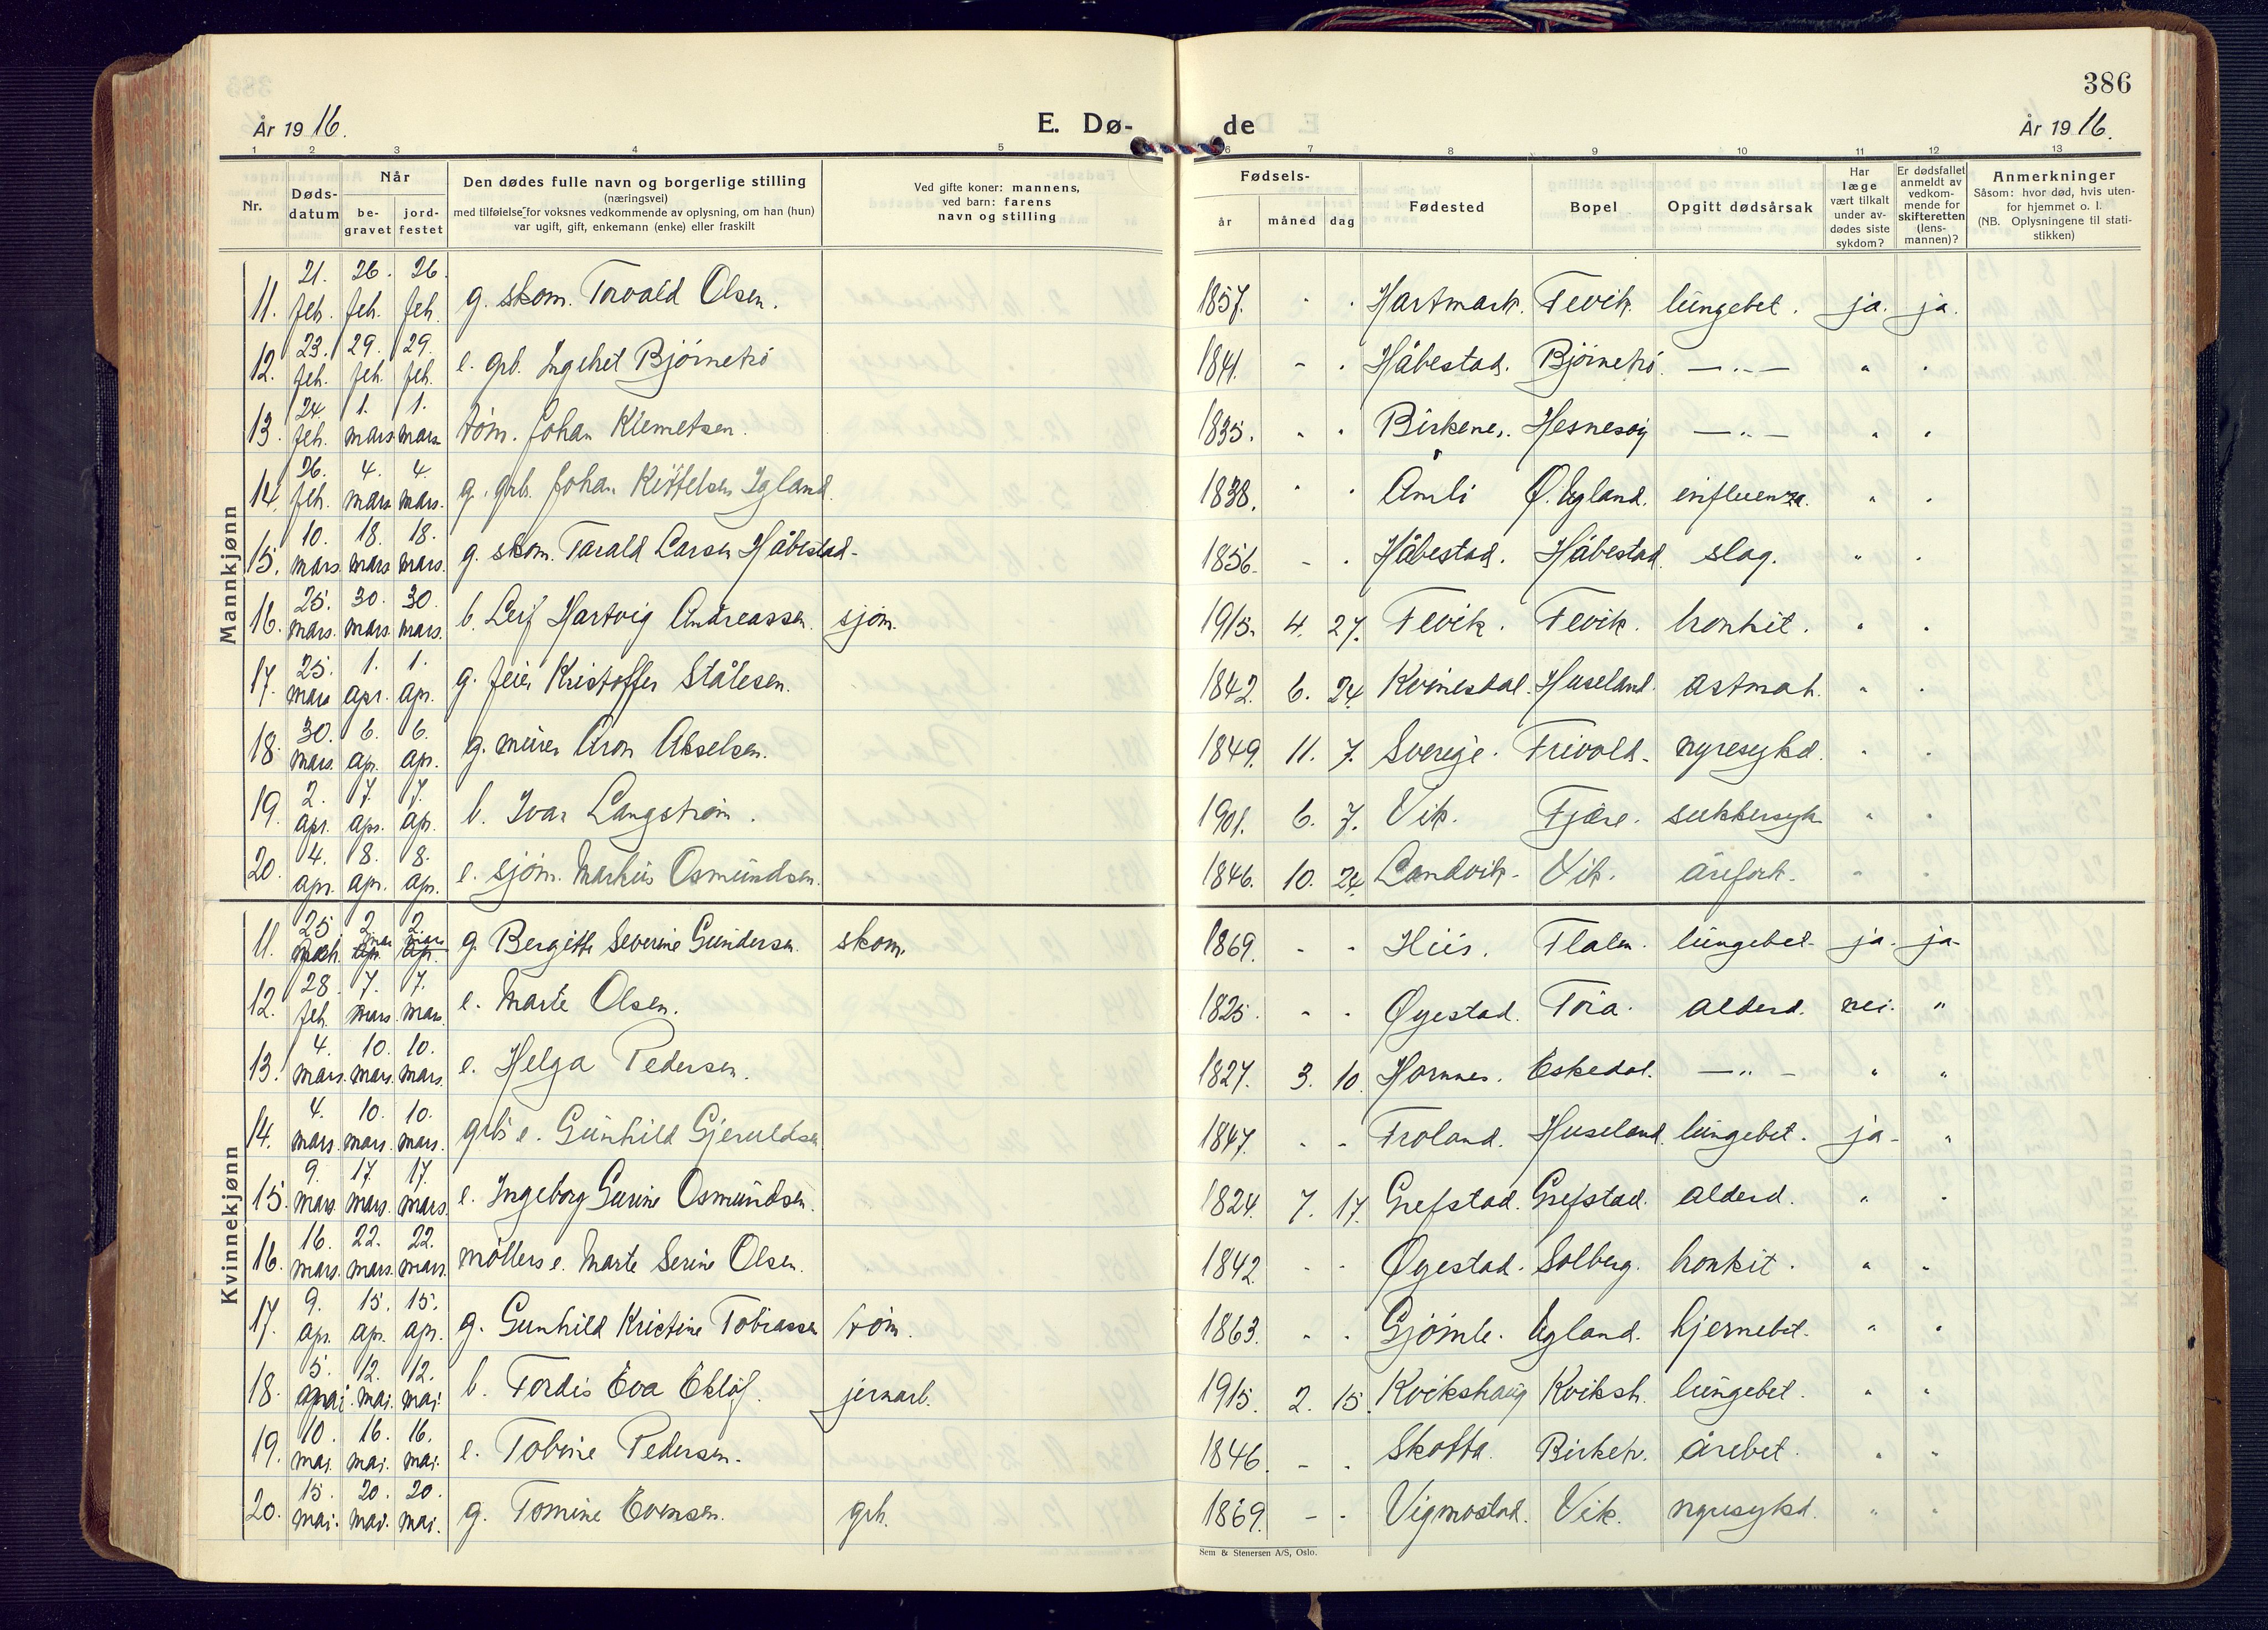 386
År 1916.
E. Dø-
de
År 1916.
1 2 3 4 5 6 7 8 9 10 11 12 13
Nr.
Døds-
datum
Når
be-
gravet
jord-
festet
Den dødes fulle navn og borgerlige stilling
(næringsvei)
med tilføielse for voksnes vedkommende av oplysning, om han (hun)
var ugift, gift, enkemann (enke) eller fraskilt
Ved gifte koner: mannens,
ved barn: farens
navn og stilling
Fødsels-
år måned dag
Fødested
Bopel
Opgitt dødsårsak
Har
læge
vært tilkalt
under av-
dødes siste
sykdom?
Er dødsfallet
anmeldt av
vedkom-
mende for
skifteretten
(lens-
mannen)?
Anmerkninger
Såsom: hvor død, hvis uten-
for hjemmet o. l.
(NB. Oplysningene til stati-
stikken)
Mannkjønn
11. 21. feb. 26. feb. 26. feb. g. skom. Torvald Olsen. 1857. - - Hartmark. Fevik. lungebet. ja. ja.
12. 23. feb. 29. feb. 29. feb. e. grb. Ingebret Bjørnetrø 1841. - - Håbestad. Bjørnetrø. —„— " "
13. 24. feb. 1. mars 1. mars tøm. Johan Klemetsen. 1835. - - Birkenes. Hesnesøy —„— " "
14. 26. feb. 4. mars 4. mars. g. grb. Johan Kittelsen Igland. 1838. - - Åmli Ø. Egland. influenza. " "
15. 10. mars 18. mars 18. mars. g. skom. Tarald Larsen Håbestad- 1856. - - Håbestad. Håbestad. slag. " "
16. 25. mars. 30. mars 30. mars. b. Leif Hartvig Andreassen. sjøm. 1915. 4. 27. Fevik. Fevik. bronkit. " "
17. 25. mars 1. apr. 1. apr. g. feier Kristoffer Stålesen. 1842. 6. 24. Kvinesdal. Huseland. astmah. " "
18. 30. mars. 6. ap. 6. apr. g. murer Aron Akselsen. 1849. 11. 7. Sverige. Frivold. nyresykd. " "
19. 2. apr. 7. apr. 7. apr. b. Ivar Langstrøm. 1901. 6. 7. Vik. Fjære. sukkersyk. " "
20. 4. apr. 8. apr. 8. apr. e. sjøm. Markus Osmundsen. 1846. 10. 24. Landvik. Vik. årefork. " "
Kvinnekjønn
11. 25 2. mar 2. mars g. Bergitte Severine Gundersen. skom. 1869. - - Hiis. Flaten. lungebet. ja. ja-
12. 28. feb. 7. mars. 7. mars. e. Marte Olsen. 1825. - - Øyestad. Tøra. alderd. nei. "
13. 4. mars. 10. mars. 10. mars. e. Helga Pedersen. 1827. 3. 10. Hornnes. Eskedal. —„— " "
14. 4. mars. 10. mars. 10. mars. grb's e. Gunhild Gjeruldsen 1847. - - Froland. Huseland. lungebet. ja- "
15. 9. mars. 17. mars. 17. mars. e. Ingeborg Gurine Osmundsen. 1824. 7. 17. Grefstad. Grefstad. alderd. " "
16. 16. mars. 22. mars. 22. mars. møllers e. Marte Serine Olsen. 1842 - - Øyestad. Solberg. bronkit. " "
17. 9. apr. 15. apr. 15. apr. g. Gunhild Kristine Tobiassen tøm. 1863. - - Gjømle. Egland. hjernebet. " "
18. 5. mai. 12. mai. 12. mai. b. Tordis Eva Ekløf. jernarb. 1915. 2. 15. Kvikshaug Kviksh. lungebet. " "
19. 10. mai. 16. mai. 16. mai. e. Tobine Pedersen. 1846. - - Skotta. Birketv. årebet. " "
20. 15. mai. 20. mai. 20. mai. g. Tomine Evensen. grb. 1869. - - Vigmostad. Vik. nyresykd. " "
Sem & Stenersen A/S, Oslo.